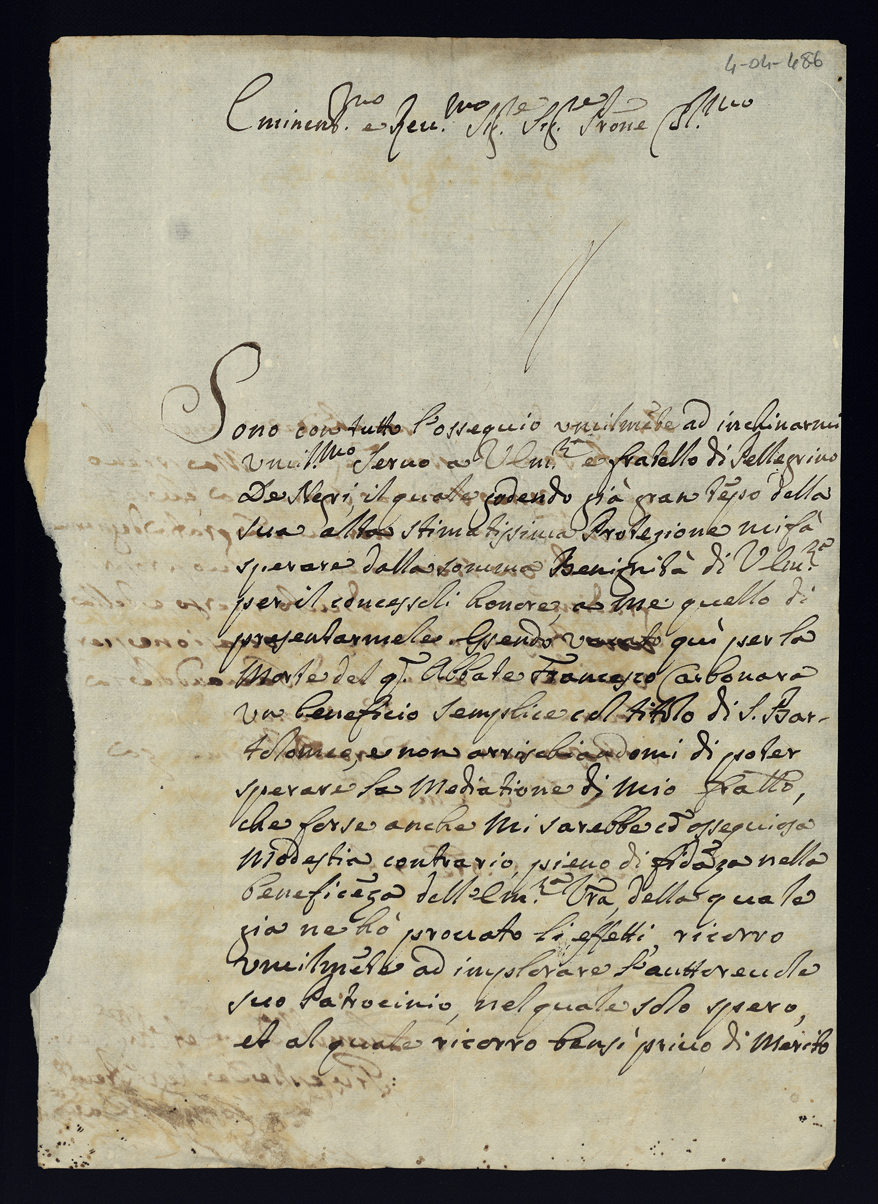 4-04-486
Eminent.mo e Reu.mo Sig.re Sig.re Prōne Col.mo
Sono con tutto l'ossequio vmilmēte ad inchinarmi
vmil.mo Seruo a V Em.za e fratello di Pellegrino
De Negri, il quale godendo già gran tēpo della
sua alta stimatissima Protezione mi fà
sperare dalla somma Benignità di V Em.za
per il concessoli honore, a me quello di
presentarmele. Essendo vacato quì per la
Morte del q.m Abbate Francesco Carbonara
vn beneficio semplice col titolo di S. Bar-
tolomeo, e non arrischiandomi di poter
sperare la Mediatione di mio fratto,
che forse anche mi sarebbe cō ossequiosa
Modestia contrario, pieno di fidāza nella
beneficēza dell'Em.za Vrā, della quale
gia ne hò prouato li effetti, ricorro
vmilmēte ad implorare l'auttoreuole
suo Patrocinio, nel quale solo spero,
et al quale ricorro bensì priuo di Merito